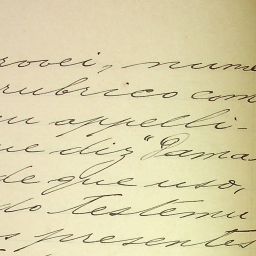 rovei, nume
rubrico com
u appelli-
ue diz "Dama
de que uso,
do testemu
s presentes